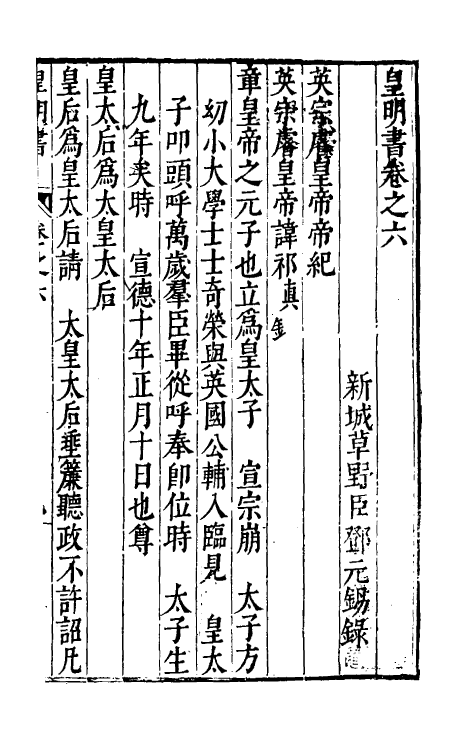 皇明書卷之六
新城草野臣鄧元錫錄
英宗睿皇帝帝紀
英宗睿皇帝諱祁真
章皇帝之元子也立爲皇太子 宣宗崩 太子方
幼小大學士士奇榮與英國公輔入臨見 皇太
子叩頭呼萬歲羣臣畢從呼奉卽位時 太子生
九年矣時 宣德十年正月十日也尊
皇太后爲太皇太后
皇后爲皇太后請 太皇太后垂簾聽政不許詔凡
皇明書 卷之六